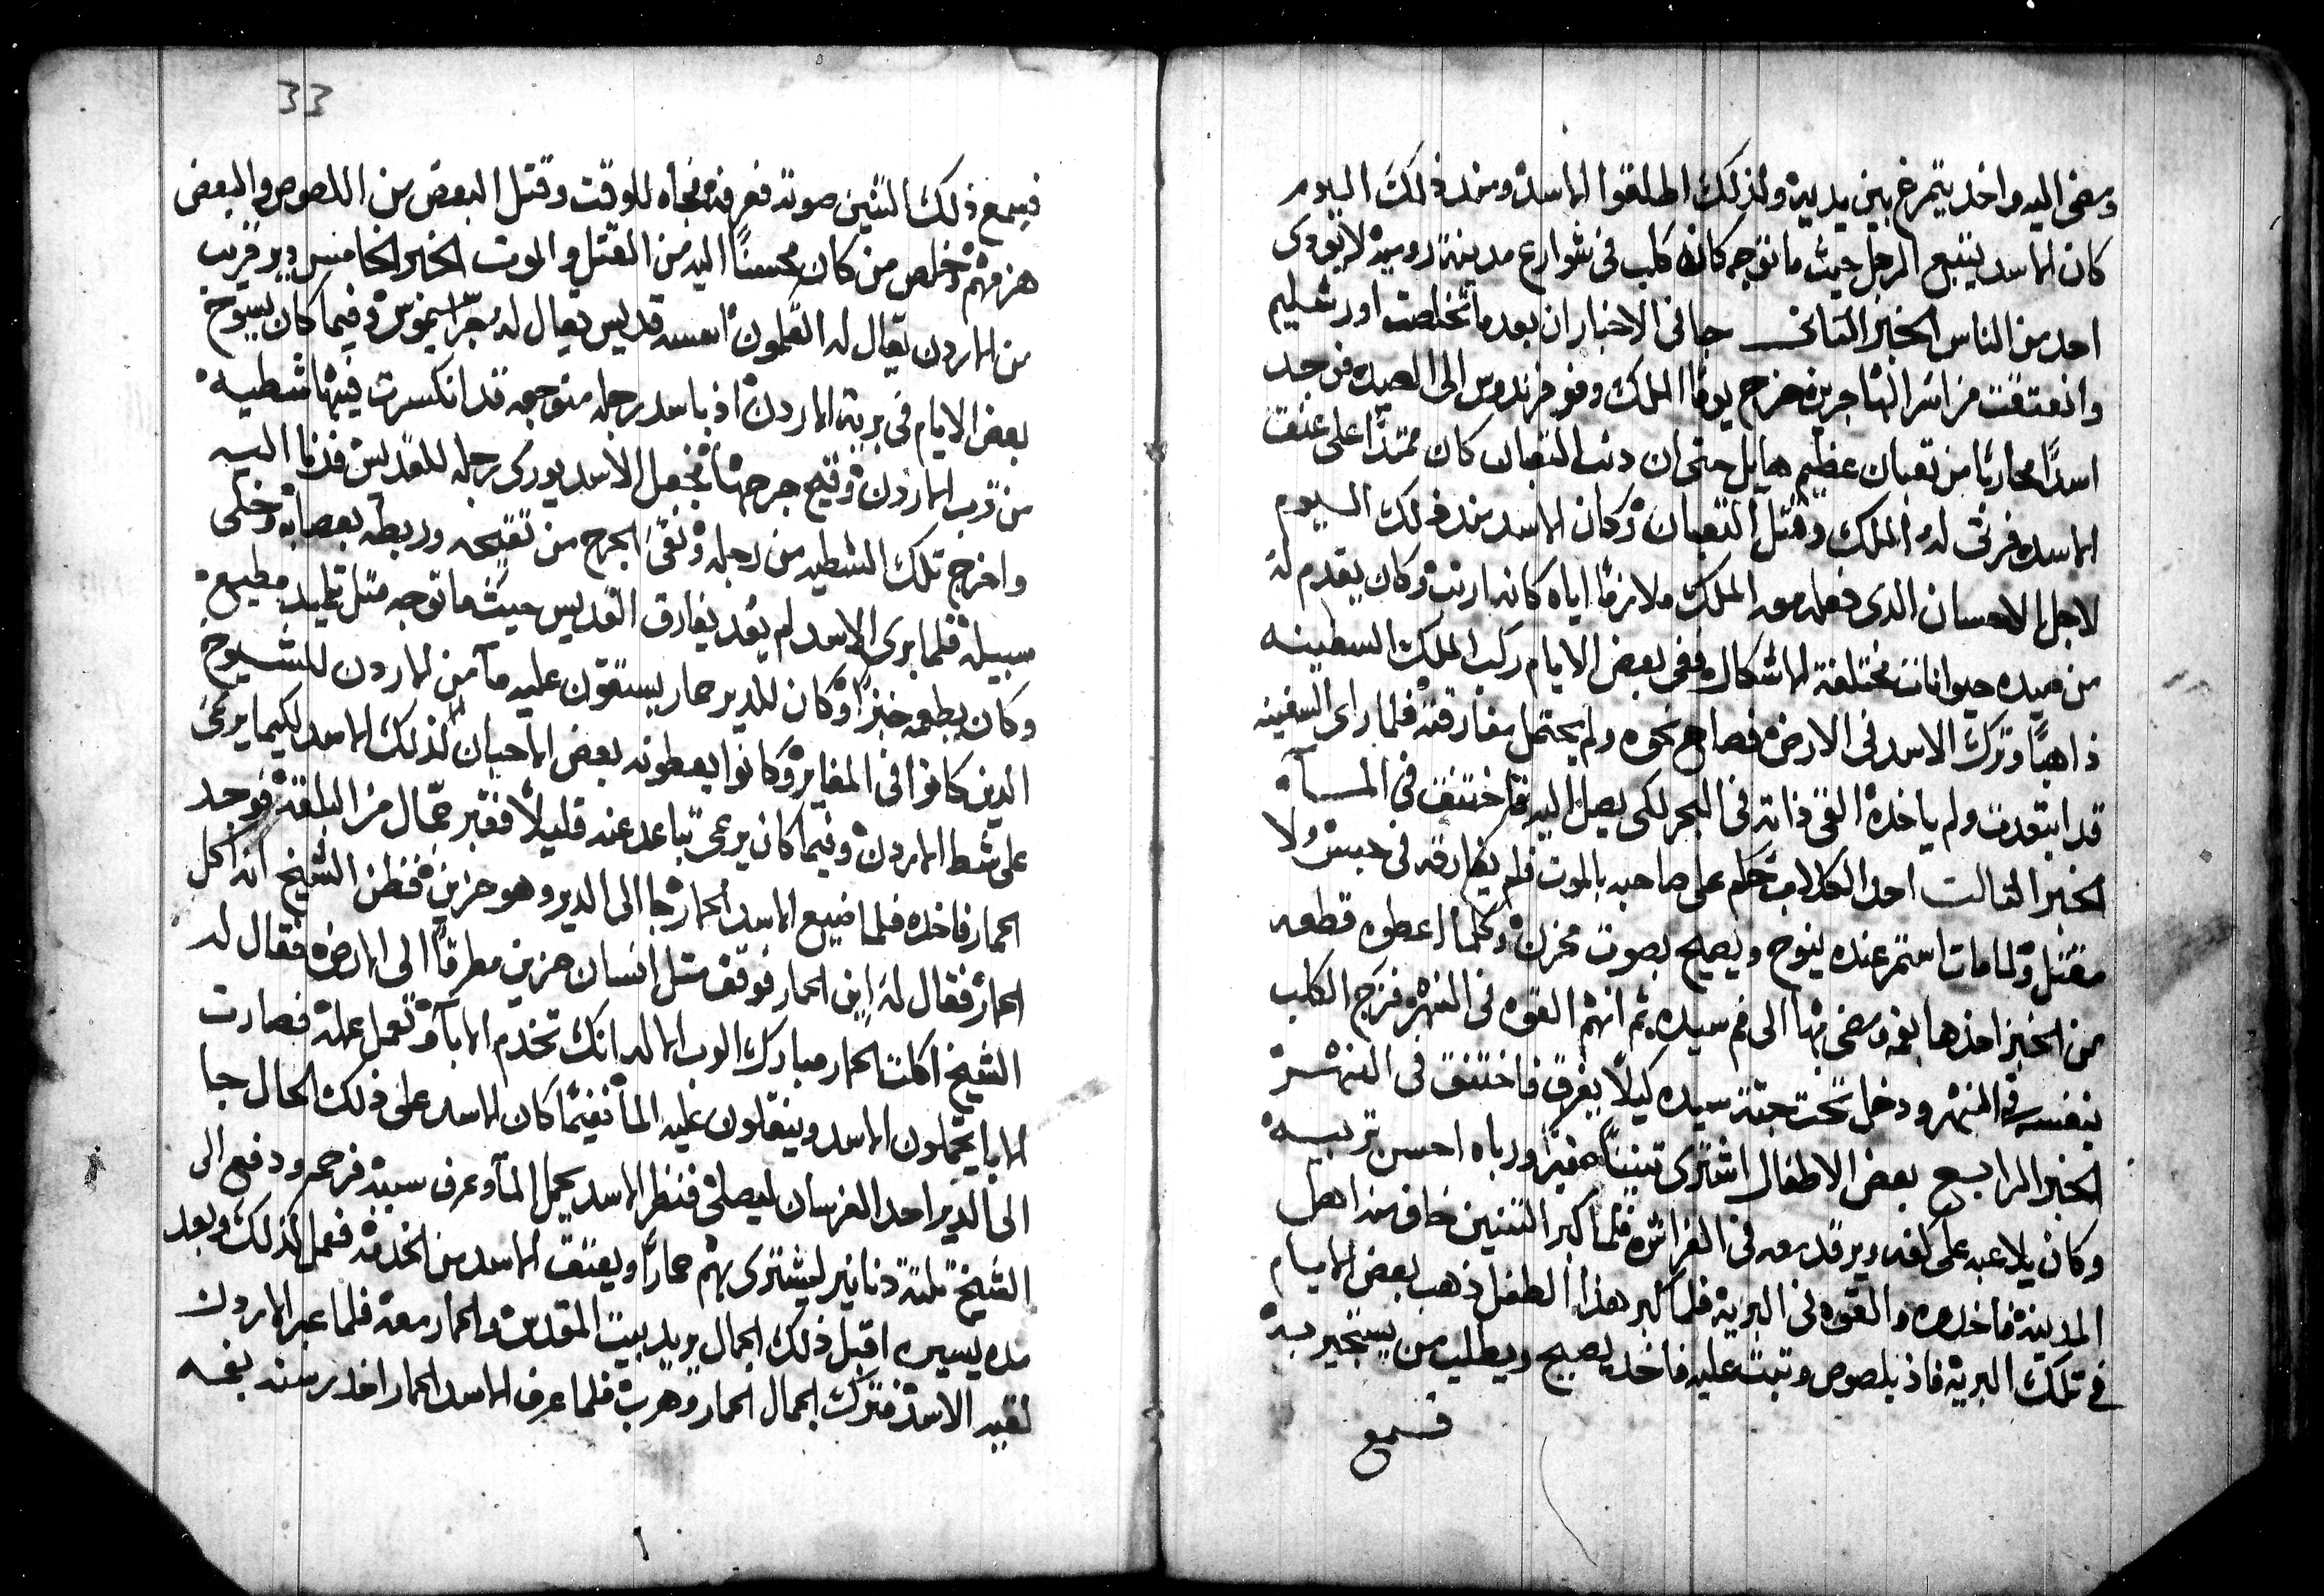 ومضى اليه واخد يتمرغ بين يديه ولذلك اطلقوا الاسد ومند ذلك اليوم
كان الاسد يتبع الرجل حيث ما توجه كانه كلب في شوارع مدينة رومية لا يودي
احد من الناس الخبر التاني جا في الاخبار ان بعد ما تخلصت اورشليم
وانعتقت من اسر خرج يوما الملك الى الصيد فوجد
اسدًا محاربًا من تعبان عظيم هايل حتى ان دنب التعبان كان ممتدًا على عنق
الاسد فرتى له الملك وقتل التعبان وكان الاسد مند دلك اليوم
لاجل الاحسان الدي فعله معه الملك ملازمًا اياه كانه ارنب وكان يقدم له
من صيده حيوانات مختلفة الاشكال ففي بعض الايام ركب الملك السفينه
ذاهبًا وترك الاسد في الارض فصاح نحوه ولم يحتمل مفارقته فلما راى السفينه
قد ابتعدت ولم ياخده القى ذاته في البحر لكي يصل اليه فاختنق في المآ
الخبر التالت احد الكلاب حكم على صاحبه بالموت فلم يفارقه في حبس ولا
مقتل ولما مات استمر عنده ينوح ويصيح بصوت محزن وكلما اعطوه قطعه
من الخبز اخذها بفمه ومضى بها الى فم سيده ثم انهم القوه في النهر فزج الكلب
بنفسه في النهر ودخل تحت جتة سيده كيلا يغرق فاختنق في النهر
الخبر الرابع بعض الاطفال اشترى تنينًا صغيرًا ورباه احسن تربيه
وكان يلاعبه على كفه ويرقد معه في الفراش فلما كبر التنين خاف منه اهل
المدينة فاخدوه والقوه في البرية فلما كبر هذا الطفل ذهب بعض الايام
في تلك البرية فاذ بلصوص وتبت عليه فاخد يصيح ويطلب من يستجير به
فسمع
33
فسمع ذلك التنين صوته فعرفه فجاه للوقت وقتل البعض من اللصوص والبعض
هزمهم وخلص من كان محسنًا اليه من القتل والموت الخبر الخامس دير قريب
من الاردن يقال له القلمون اسسه قديس يقال له جراسيموس وفيما كان يسوح
بعض الايام في برية الاردن اذ باسد رجله متوجعه قد انكسرت فيها شطيه
من قرب الاردن وقيح جرحها فجعل الاسد يوري رجله للقديس فدنا اليه
واخرج تلك الشطيه من رجله ونقى الجرح من تقيحه وربطه بعصابه وخلى
سبيله فلما بري الاسد لم يعد يفارق القديس حيث ما توجه متل تلميد مطيع
وكان يطعمه خبزًا وكان للدير حمار يستقون عليه مآ من الاردن للشيوخ
الدين كانوا في المغاير وكانوا يعطونه بعض الاحيان لذلك الاسد لكيما يرعى
على شط الاردن وفيما كان يرعى تباعد عنه قليلًا فعبر جمّال من فوجد
الحمار فاخده فلما ضيع الاسد الحمار جا الى الدير وهو حزين فظن الشيخ انه اكل
الحمار فقال له اين الحمار فوقف متل انسان حزين مطرقًا الى الارض فقال له
الشيخ اكلت الحمار مبارك الرب الاله انك تخدم الابآ وتعمل عمله فصارت
الابا يحملون الاسد وينقلون عليه المآ ففيما كان الاسد على ذلك الحال جا
الى الدير احد الفرسان ليصلي فنظر الاسد يحمل المآ وعرف سببه فرحم ودفع الى
الشيخ تلتة دنانير ليشتري بهم حمارًا ويعتق الاسد من الخدمة ففعل كذلك وبعد
مده يسيره اقبل ذلك الجمال يريد بيت المقدس والحمار معه فلما عبر الاردن
لقيه الاسد فترك الجمال الحمار وهرب فلما عرف الاسد الحمار اخد برسنه بفمه